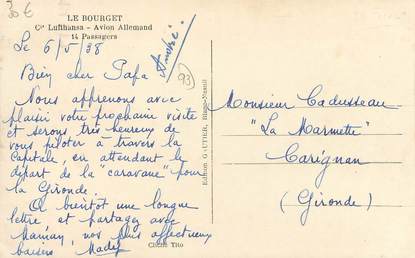 30 €
LE BOURGET
Cie Lufthansa - Avion Allemand
14 Passagers
Le 6/5/38
André
93
Bien cher Papa
Nous apprenons avec
plaisir votre prochaine visite
et serons très heureux de
vous piloter à travers la
Capitale, en attendant le
départ de la "caravane" pour
la Gironde.
A bientôt une longue
lettre et partagez avec
Maman, nos plus affectueux
baisers
Cliché Tito
Edition G
Monsieur Cadusseau
"La Marmette"
Carignan
(Gironde)